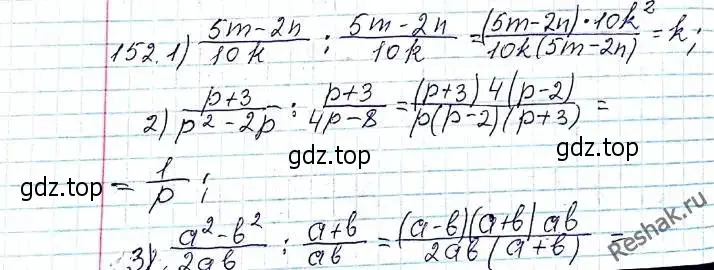 152. 1) (5m-2n)/(10k) : (5m-2n)/(10k) = ((5m-2n)·10k²)/(10k(5m-2n)) = k;
2) (p+3)/(p²-2p) : (p+3)/(4p-8) = ((p+3)4(p-2))/(p(p-2)(p+3)) =
gdz.top gdz.top gdz.top
= 1/p;
3) (a²-b²)/(2ab) : (a+b)/(ab) = ((a-b)(a+b)ab)/(2ab(a+b)) =
gdz.top gdz.top gdz.top
Reshak.ru